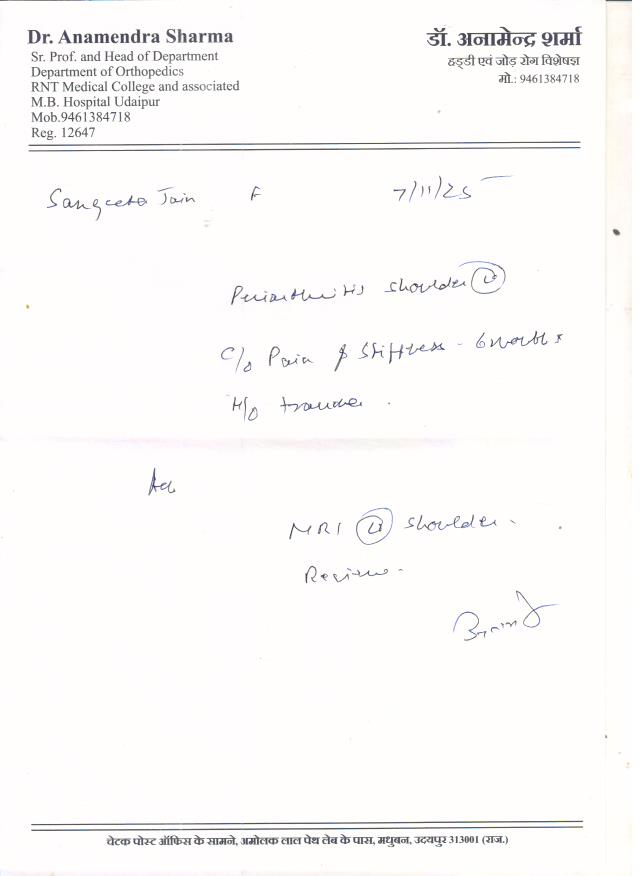 Dr. Anamendra Sharma
Sr. Prof. and Head of Department
Department of Orthopedics
RNT Medical College and associated
M.B. Hospital Udaipur
Mob.9461384718
Reg. 12647
डॉ. अनामेन्द्र शर्मा
हड्डी एवं जोड़ रोग विशेषज्ञ
मो.: 9461384718
Sangeeta Jain F 7/11/25
Periarthritis shoulder Lt
C/o Pain & Stiffness - 6 month
H/o trauma.
Adv
MRI Lt shoulder.
Review.
चेटक पोस्ट ऑफिस के सामने, अमोलक लाल पेथ लेब के पास, मधुबन, उदयपुर 313001 (राज.)